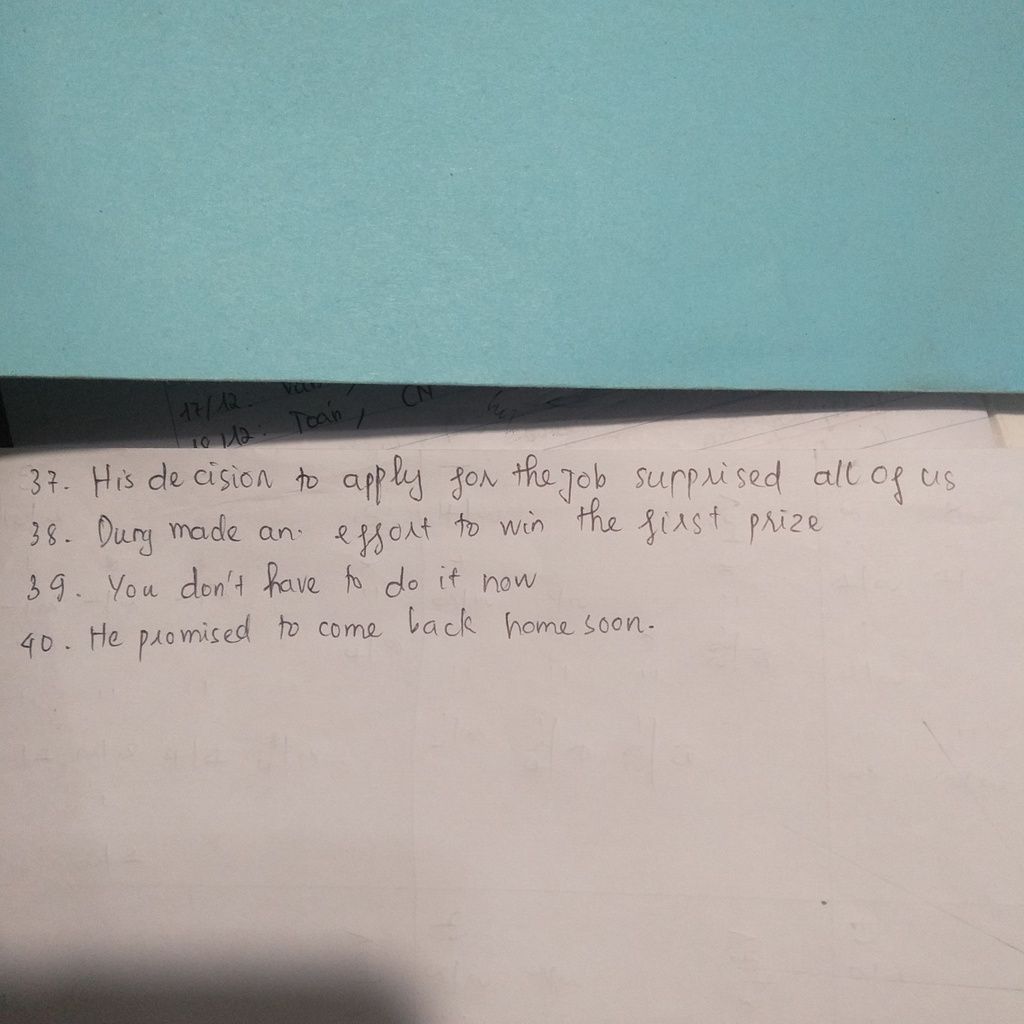 17/12.
CN
Toán,
37. His decision to apply for the job surprised all of us
38. Dung made an. effort to win the first prize
39. You don't have to do it now
40. He promised to come back home soon.